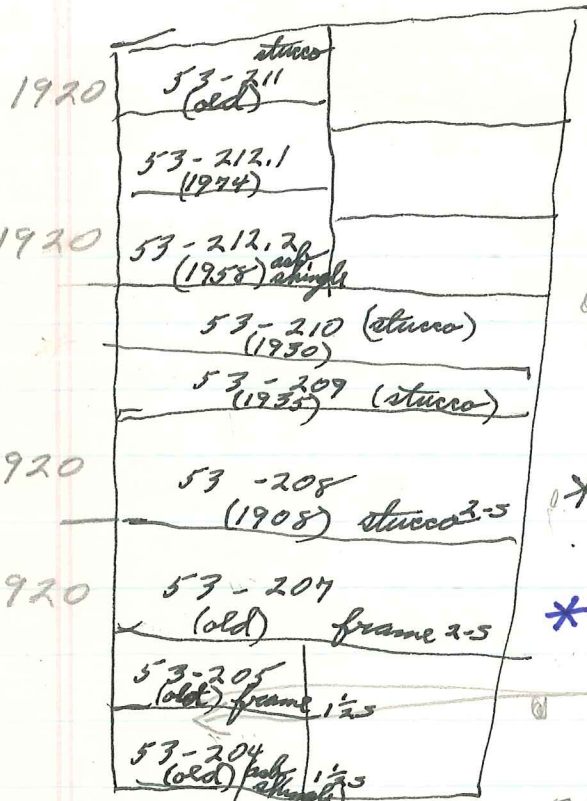 stucco
1920 53-211
(old)
53-212.1
(1974)
1920 53-212.2
(1958) asb shingle
53-210 (stucco)
(1930)
53-209 (stucco)
(1935)
920 53-208
(1908) stucco 2-S
*
920 53-207
(old) frame 2-S
*
53-205
(old) frame 1½S
53-204
(old) asb shingle 1½S